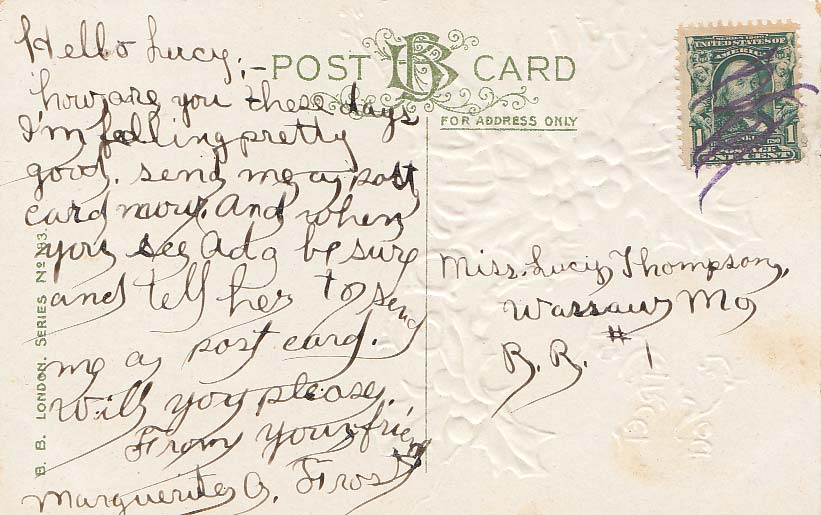 Hello Lucy;-
how are you these days
I'm felling pretty
good. send me a post
card mary. And when
you see Ada be sure
and tell her to send
me a post card.
Will you please.
From your friend
Marguerite A. Frost
POST CARD
BB
FOR ADDRESS ONLY
UNITED STATES OF
AMERICA
1 1
ONE CENT
Miss. Lucy Thompson,
Warsaw Mo
R. R. #1
B. B. LONDON. SERIES No